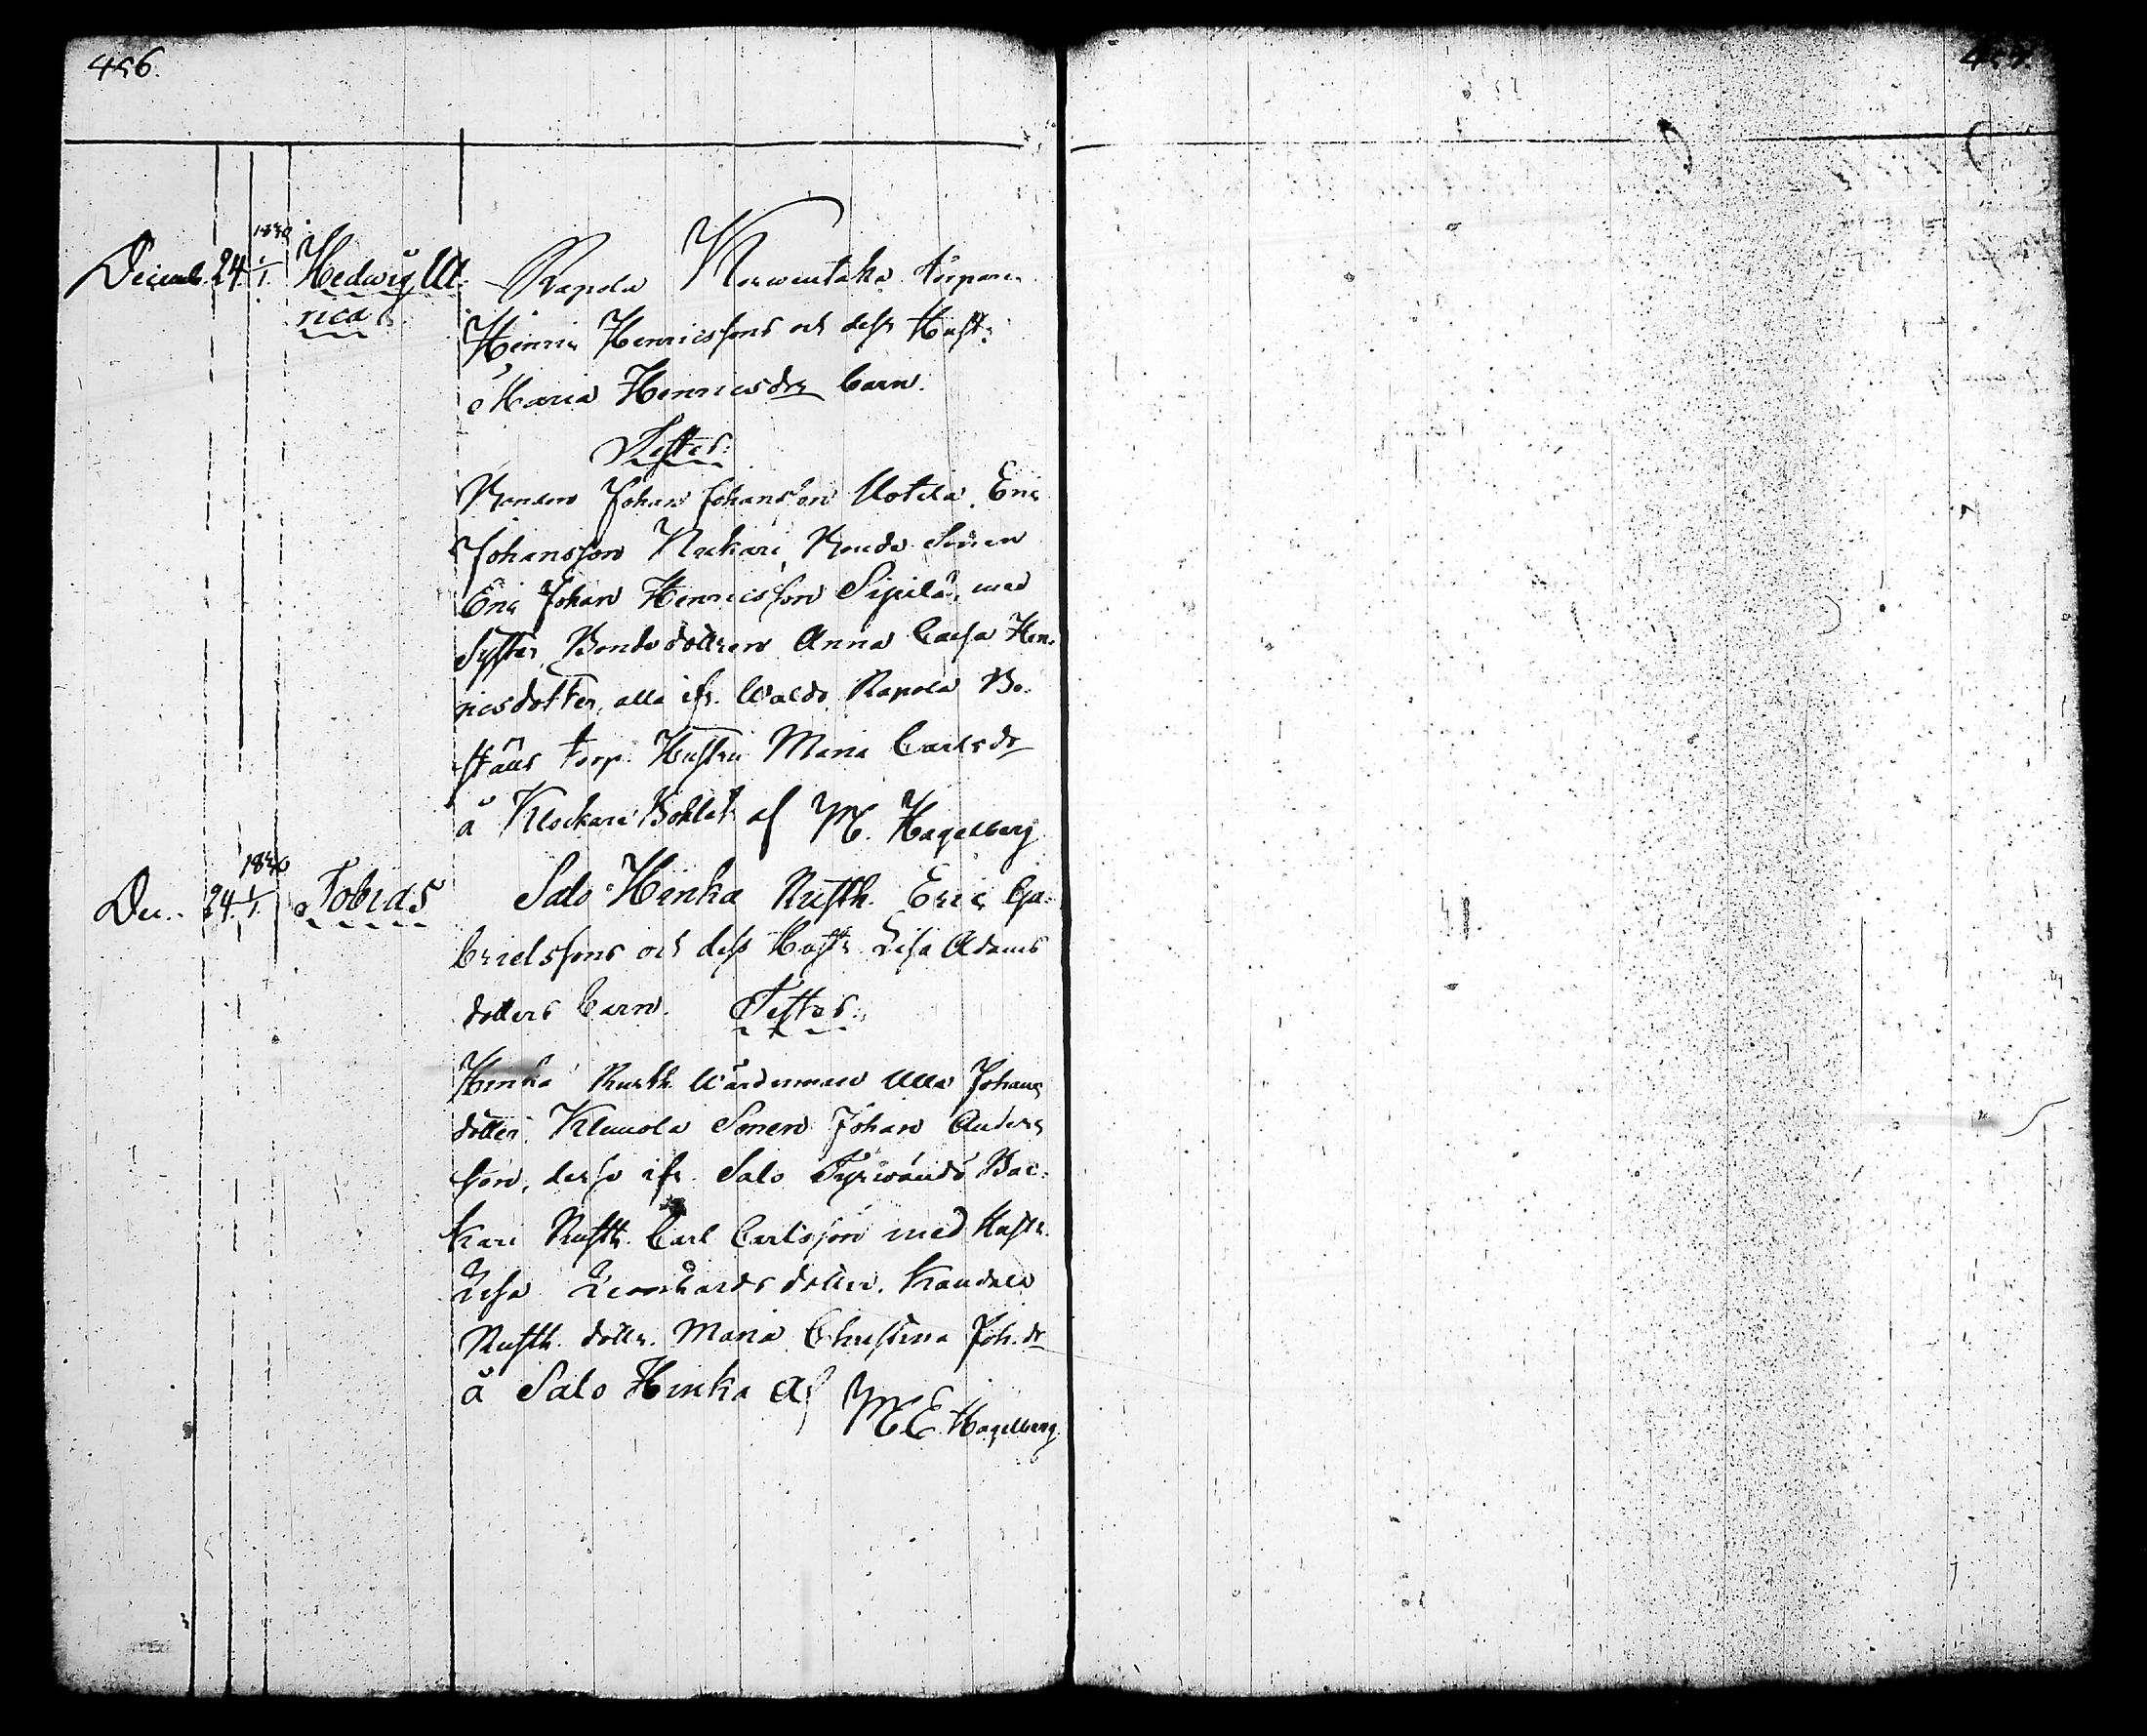 456.
457.
1840
Decemb. 24 1/1. Hedwig Ul-
rica
Rapola Korwentaka torparen
Henric Henricssons och dess Hustr:
Maria Henricsdr barn.
Testes:
Bonden Johan Johansson Uotila, Eric
Johansson Nackari, Bonde Sonen
Eric Johan Henricsson Sipilä, med
Syster, Bondedottren Anna Caisa Hen-
ricsdotter, alla ifr. Waldo. Rapola Bo-
ställs torp. Hustru Maria Carlsdr
å Klockare Bohlet af M. Hagelberg
1840
Dec. 24. 1/1. Tobias
Salo Hinka Rusth. Eric Ga-
brielssons och dess Hustr Lisa Adams
dotters barn. Testes:
Hinka Rusth. Wärdinnan Ulla Johans
dotter, Klemola Sonen Johan Anders
son, desse ifr. Salo. Tyrwändö Bac-
kari Rusth. Carl Carlsson med Hustr.
Lisa Leonhardsdotter.
Rusth. dottr. Maria Christina Joh.dr
å Salo Hinka af
M E Hagelberg.